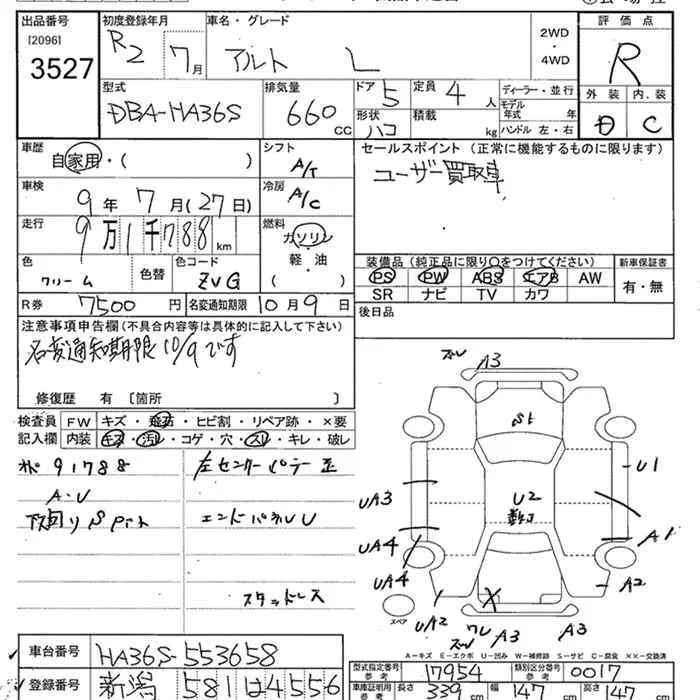 出品番号 初度登録年月 車名・グレード 2WD・4WD 評価点
[2096] 3527 R2 7月 アルト L R
型式 排気量 ドア 定員 ディーラー・並行 外装 内装
DBA-HA36S 660cc 5 4人 モデル年式 年 D C
形状 積載 ハンドル 左・右
ハコ kg
車歴 自家用・( ) シフト A/T セールスポイント(正常に機能するものに限ります)
車検 9年7月(27日) 冷房 A/C ユーザー買取車
走行 9万1千788km 燃料 ガソリン 軽・油 ( )
色 クリーム 色替 色コード ZVG
装備品(純正品に限り○をつけてください) 新車保証書
PS PW ABS エアB AW 有・無
SR ナビ TV カワ
R券 7500円 名変通知期限 10月9日 後日品
注意事項申告欄(不具合内容等は具体的に記入して下さい)
名変通知期限10/9です
修復歴 有 〔箇所 〕
検査員 FW キズ・飛石・ヒビ割・リペア跡・×要
記入欄 内装 キズ・汚レ・コゲ・穴・スレ・キレ・破レ
91788 左センターピラー
A・U
下回りSPット エンドパネルU
スタッドレス
ズレ A3
St
U1
UA3 U2
UA4 A1
UA4 A2
スペア UA2 ズレ ワレ A3 A3
A-キズ E-エクボ U-凹み W-補修跡 S-サビ C-腐食 ××-交換済
車台番号 HA36S-553658
登録番号 新潟 581 は 4556
型式指定番号 参考 17954 類別区分番号 参考 0017
車庫証明用 参考 長さ 339cm 幅 147cm 高さ 147cm